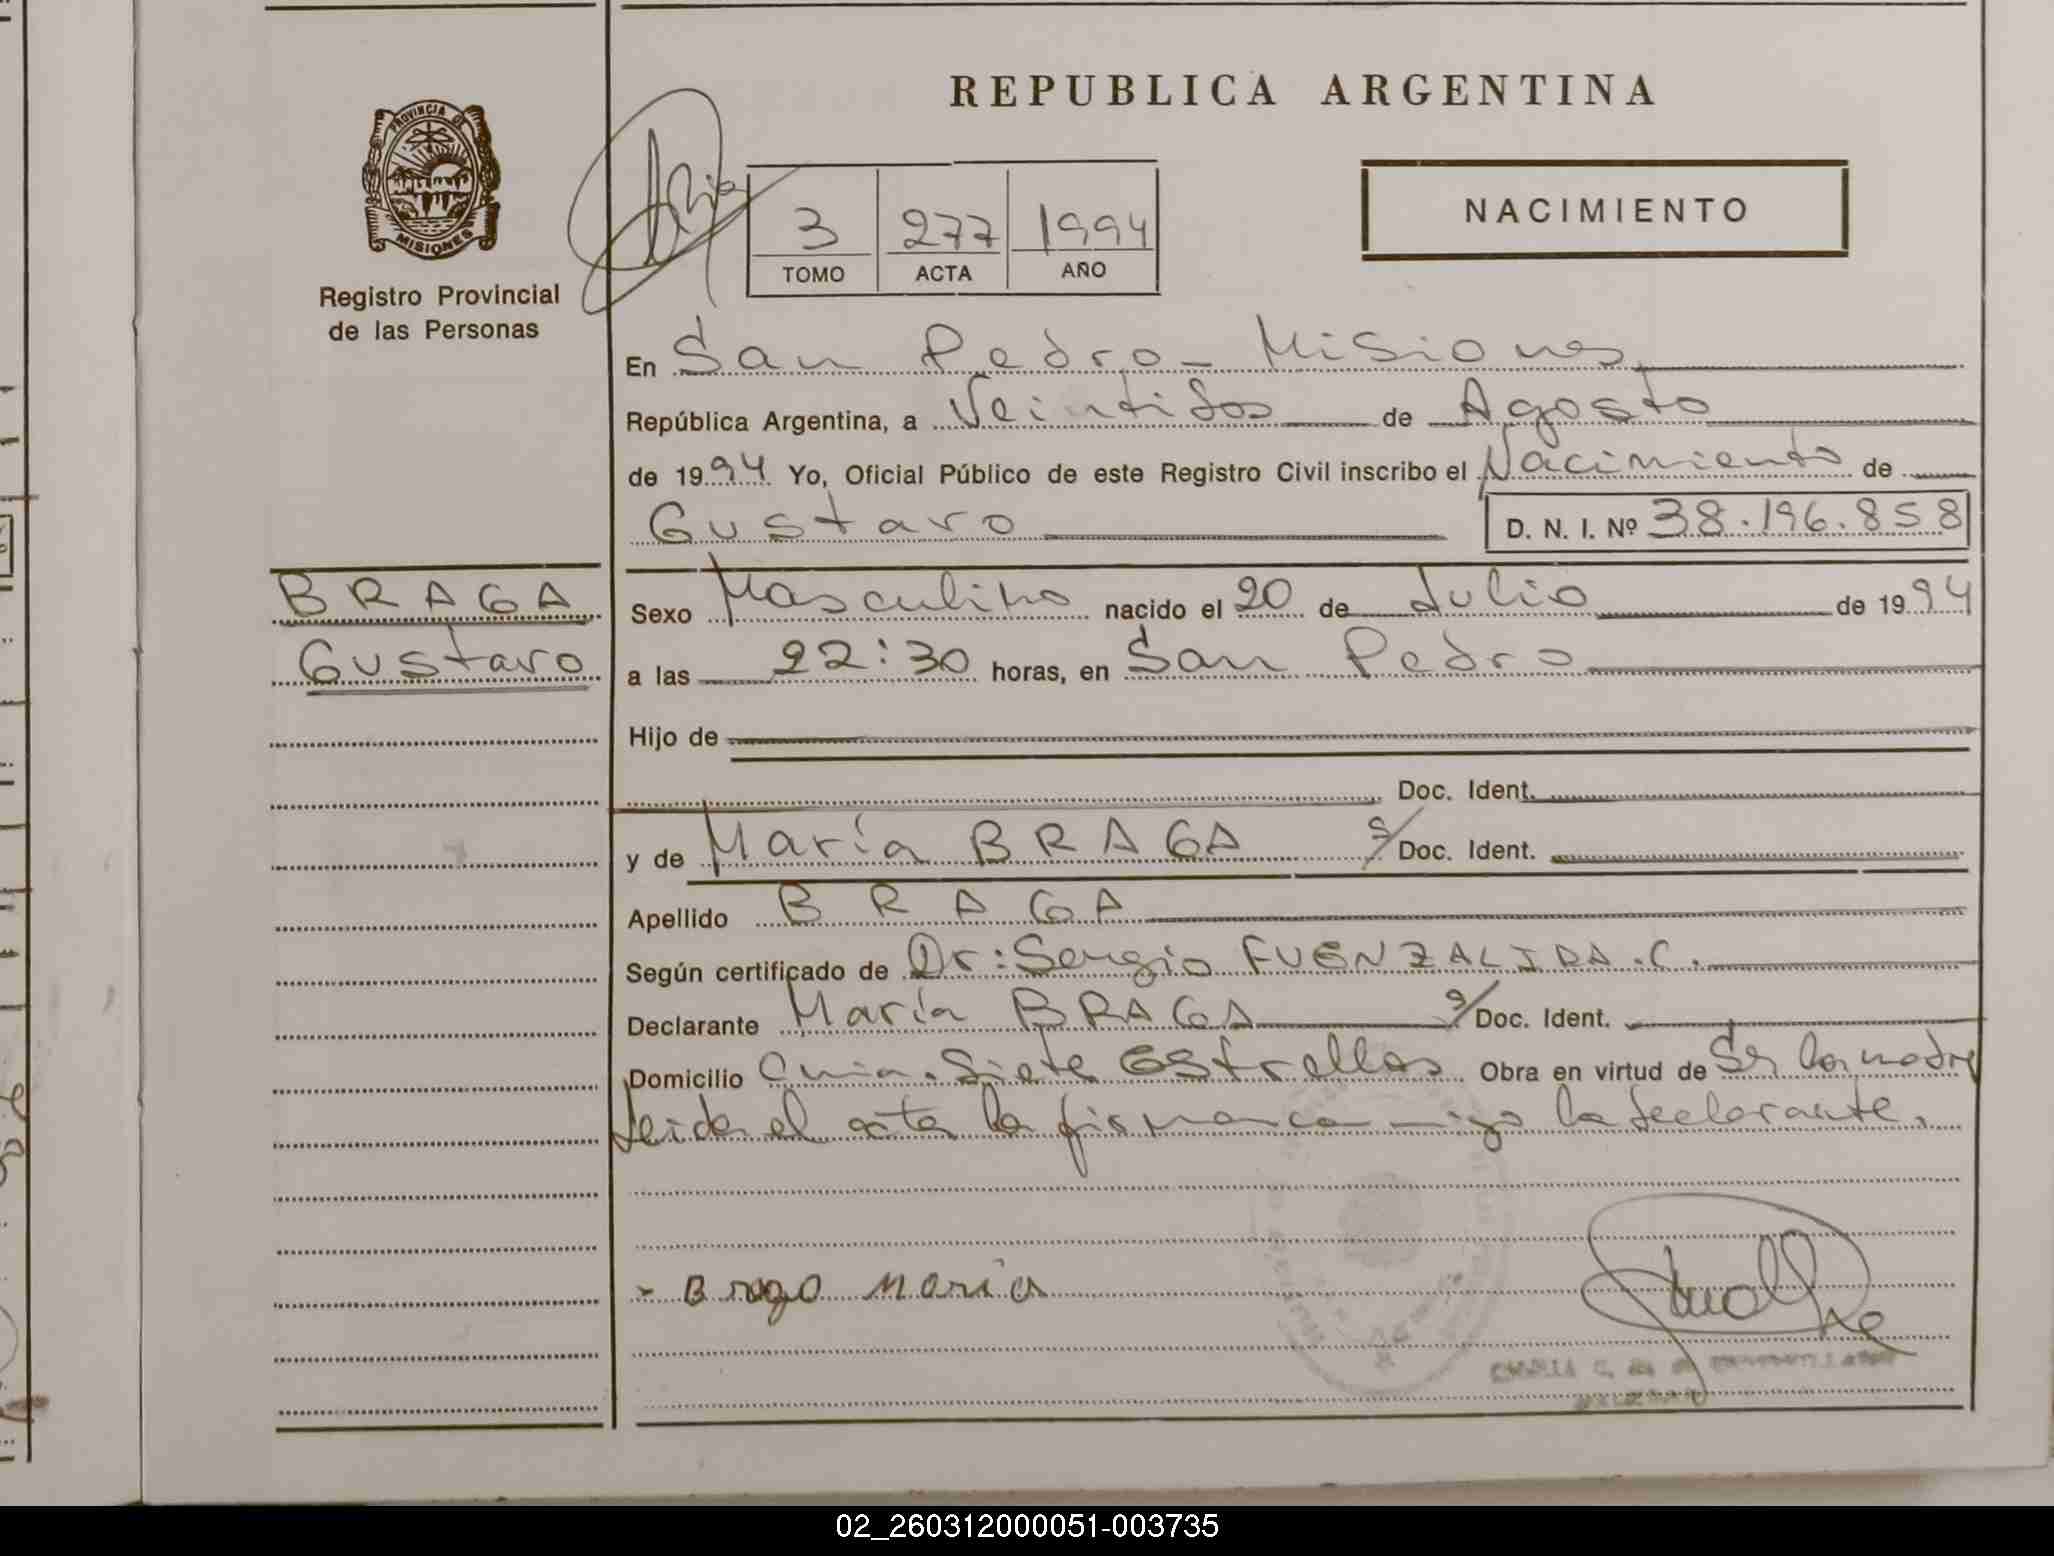 REPUBLICA ARGENTINA
PROVINCIA DE
MISIONES
Registro Provincial
de las Personas
3 277 1994
TOMO ACTA AÑO
NACIMIENTO
En San Pedro - Misiones
República Argentina, a Veintidos de Agosto
de 1994 Yo, Oficial Público de este Registro Civil inscribo el Nacimiento de
Gustavo D. N. I. Nº 38.196.858
BRAGA
Gustavo
Sexo Masculino nacido el 20 de Julio de 1994
a las 22:30 horas, en San Pedro
Hijo de
Doc. Ident.
y de María BRAGA s/ Doc. Ident.
Apellido BRAGA
Según certificado de Dr: Sergio FUENZALIDA.C.
Declarante María BRAGA s/ Doc. Ident.
Domicilio Cnia. Siete Estrellas Obra en virtud de Ser la madre
Leida el acta la firma conmigo la declarante.
- Braga Maria
02_260312000051-003735